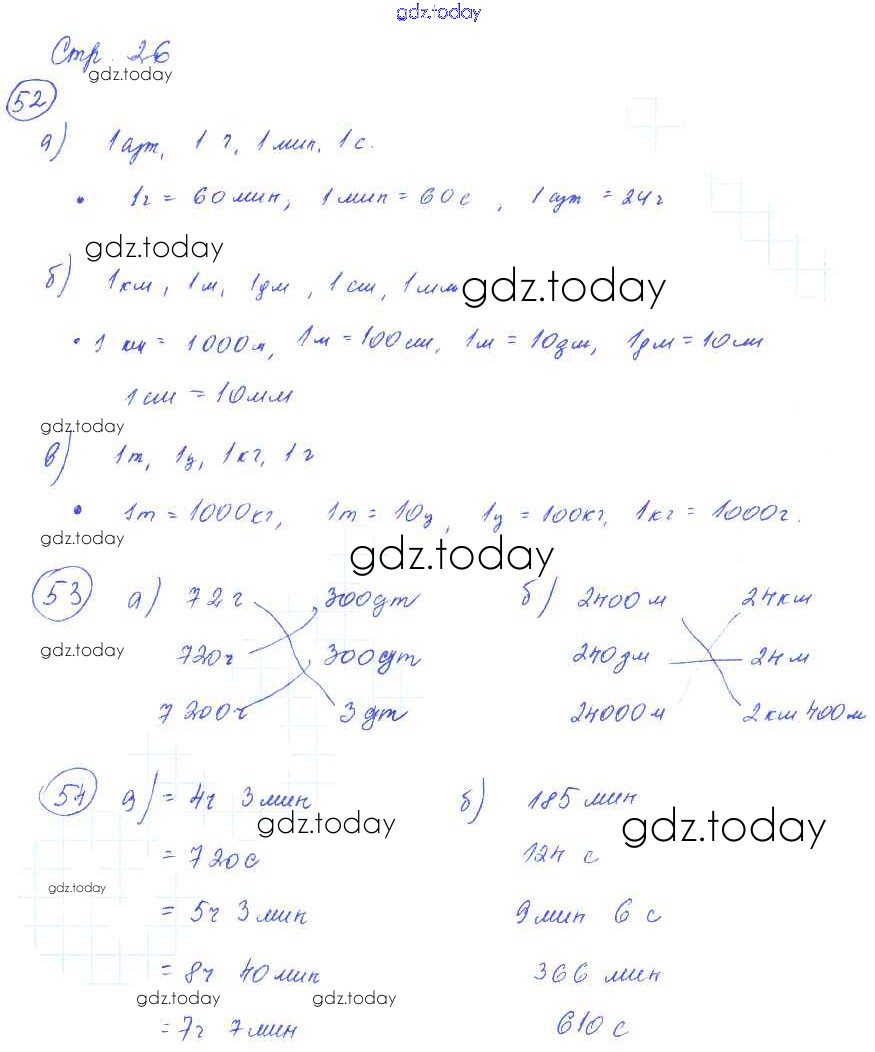 gdz.today
Стр. 26
gdz.today
52
а) 1 сут, 1 ч, 1 мин, 1 с.
• 1ч = 60 мин, 1 мин = 60 с, 1 сут = 24 ч
gdz.today
б) 1 км, 1 м, 1 дм, 1 см, 1 мм
gdz.today
• 1 км = 1000 м, 1 м = 100 см, 1 м = 10 дм, 1 дм = 10 см
1 см = 10 мм
gdz.today
в) 1 т, 1 ц, 1 кг, 1 г
• 1 т = 1000 кг, 1 т = 10 ц, 1 ц = 100 кг, 1 кг = 1000 г.
gdz.today
gdz.today
53 а) 72 ч 300 сут б) 2400 м 24 км
gdz.today
720 ч 300 сут 240 дм 24 м
7 200 ч 3 сут 24000 м 2 км 400 м
54 а) = 4ч 3 мин б) 185 мин
gdz.today
gdz.today
= 720 с 124 с
gdz.today
= 5ч 3 мин 9 мин 6 с
= 8ч 40 мин 366 мин
gdz.today
gdz.today
= 7ч 7 мин 610 с